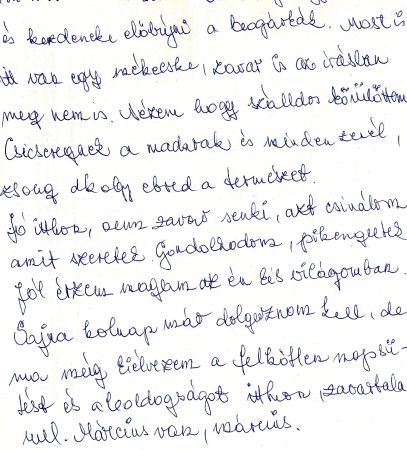 és kezdenek előbújni a bogárkák. Most is
itt van egy méhecske, zavar is az írásban
meg nem is. Nézem hogy szálldos körülöttem
Csicseregnek a madarak és minden zenél,
zsong ahogy ébred a természet.
Jó itthon, nem zavar senki, azt csinálom
amit szeretek. Gondolkodom, pihengetek
Jól érzem magam az én kis világomban.
Sajna holnap már dolgoznom kell, de
ma még kiélvezem a felhőtlen napsü-
tést és a boldogságot itthon, zavartala
nul. Március van, március.